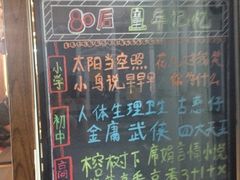 80后 童年记忆
小学
太阳当空照 花儿对我笑
小鸟说早早早 你 什么
初中
人体生理卫生 古惑仔
金庸 武侠 四大天王
高
榕树下 席娟言情小说